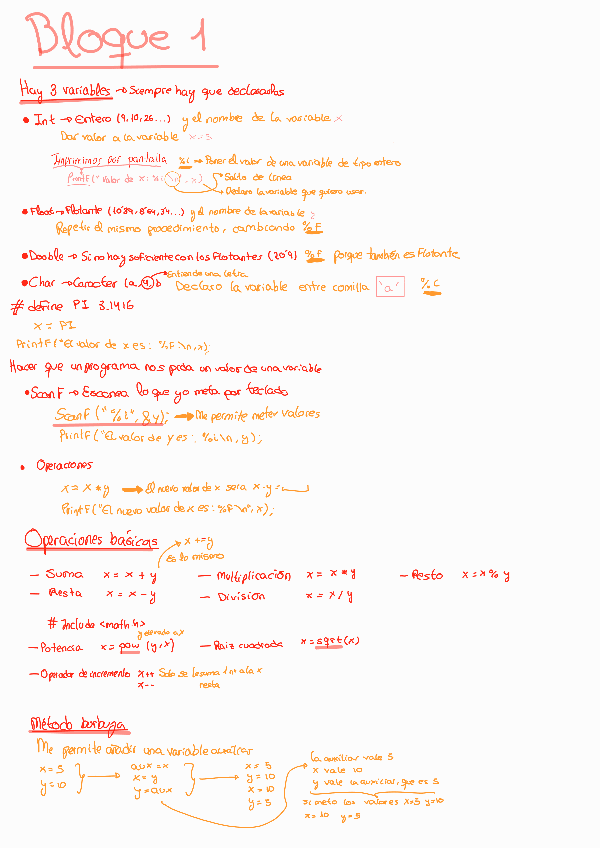 Bloque 1
Hay 3 variables → Siempre hay que declararlas
• Int → Entero (9,10,26...) y el nombre de la variable x
Dar valor a la variable x=3
Imprimimos por pantalla %i → Poner el valor de una variable de tipo entero
PrintF("valor de x: %i \n", x) → Salto de línea
→ Declaro la variable que quiero usar.
• Float → Flotante (10'89, 8'64, 34...) y el nombre de la variable ;
Repetir el mismo procedimiento, cambiando %F
• Dooble → Si no hay suficiente con los Flotantes (20'9) %F porque también es Flotante
→ Entiende una letra
• Char → Caracter (a, 9, b Declaro la variable entre comilla "a" %c
# define PI 3.1416
x = PI
PrintF("El valor de x es: %F \n, x);
Hacer que un programa nos pida un valor de una variable
• ScanF → Escanea lo que yo meta por teclado
ScanF ("%i", &y); → Me permite meter valores
PrintF("El valor de y es: %i \n, y);
• Operaciones
x = x * y → El nuevo valor de x sera x·y =
PrintF("El nuevo valor de x es: %F \n", x);
Operaciones basicas
x += y
Es lo mismo
— Suma x = x + y — Multiplicación x = x * y — Resto x = x % y
— Resta x = x - y — División x = x / y
# Include <math h>
y elevado a x
— Potencia x = pow (y, x) — Raiz cuadrada x = sqrt(x)
— Operador de incremento x++ Solo se le suma 1 nº a la x
x-- resta
Método burbuja
Me permite añadir una variable auxiliar
x = 5
y = 10
aux = x
x = y
y = aux
x = 5
y = 10
x = 10
y = 5
la auxiliar vale 5
x vale 10
y vale la auxiliar, que es 5
si meto los valores x=5 y=10
x = 10 y = 5